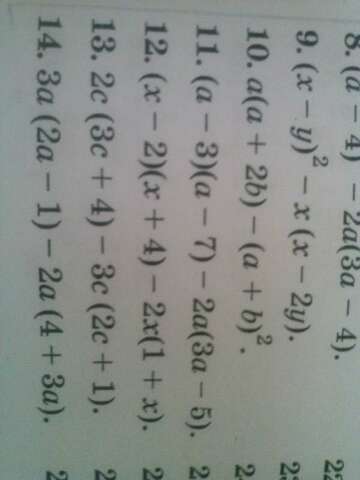 8. (a − 4)² − 2a(3a − 4).
9. (x − y)² − x (x − 2y).
10. a(a + 2b) − (a + b)².
11. (a − 3)(a − 7) − 2a(3a − 5).
12. (x − 2)(x + 4) − 2x(1 + x).
13. 2c (3c + 4) − 3c (2c + 1).
14. 3a (2a − 1) − 2a (4 + 3a).